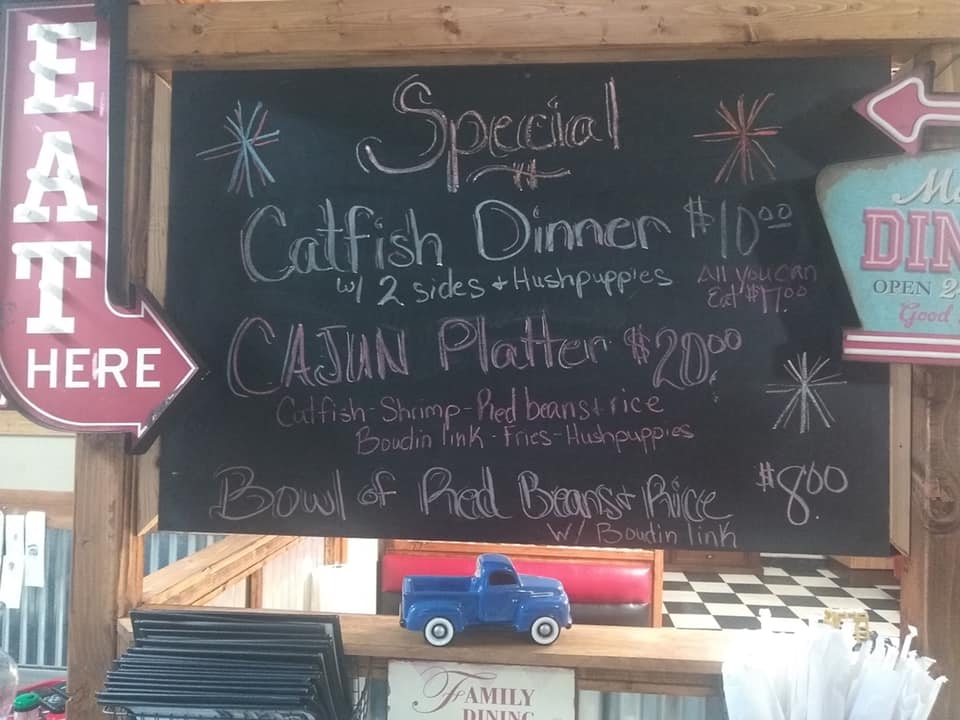 EAT
HERE
Special
Catfish Dinner $10.00
w/ 2 sides + Hushpuppies
All you can
Eat $17.00
CAJUN Platter $20.00
Catfish - Shrimp - Red beans + rice
Boudin link - Fries - Hushpuppies
Bowl of Red Beans + Rice $8.00
W/ Boudin link
DIN
OPEN 2
Good
FAMILY
DINING